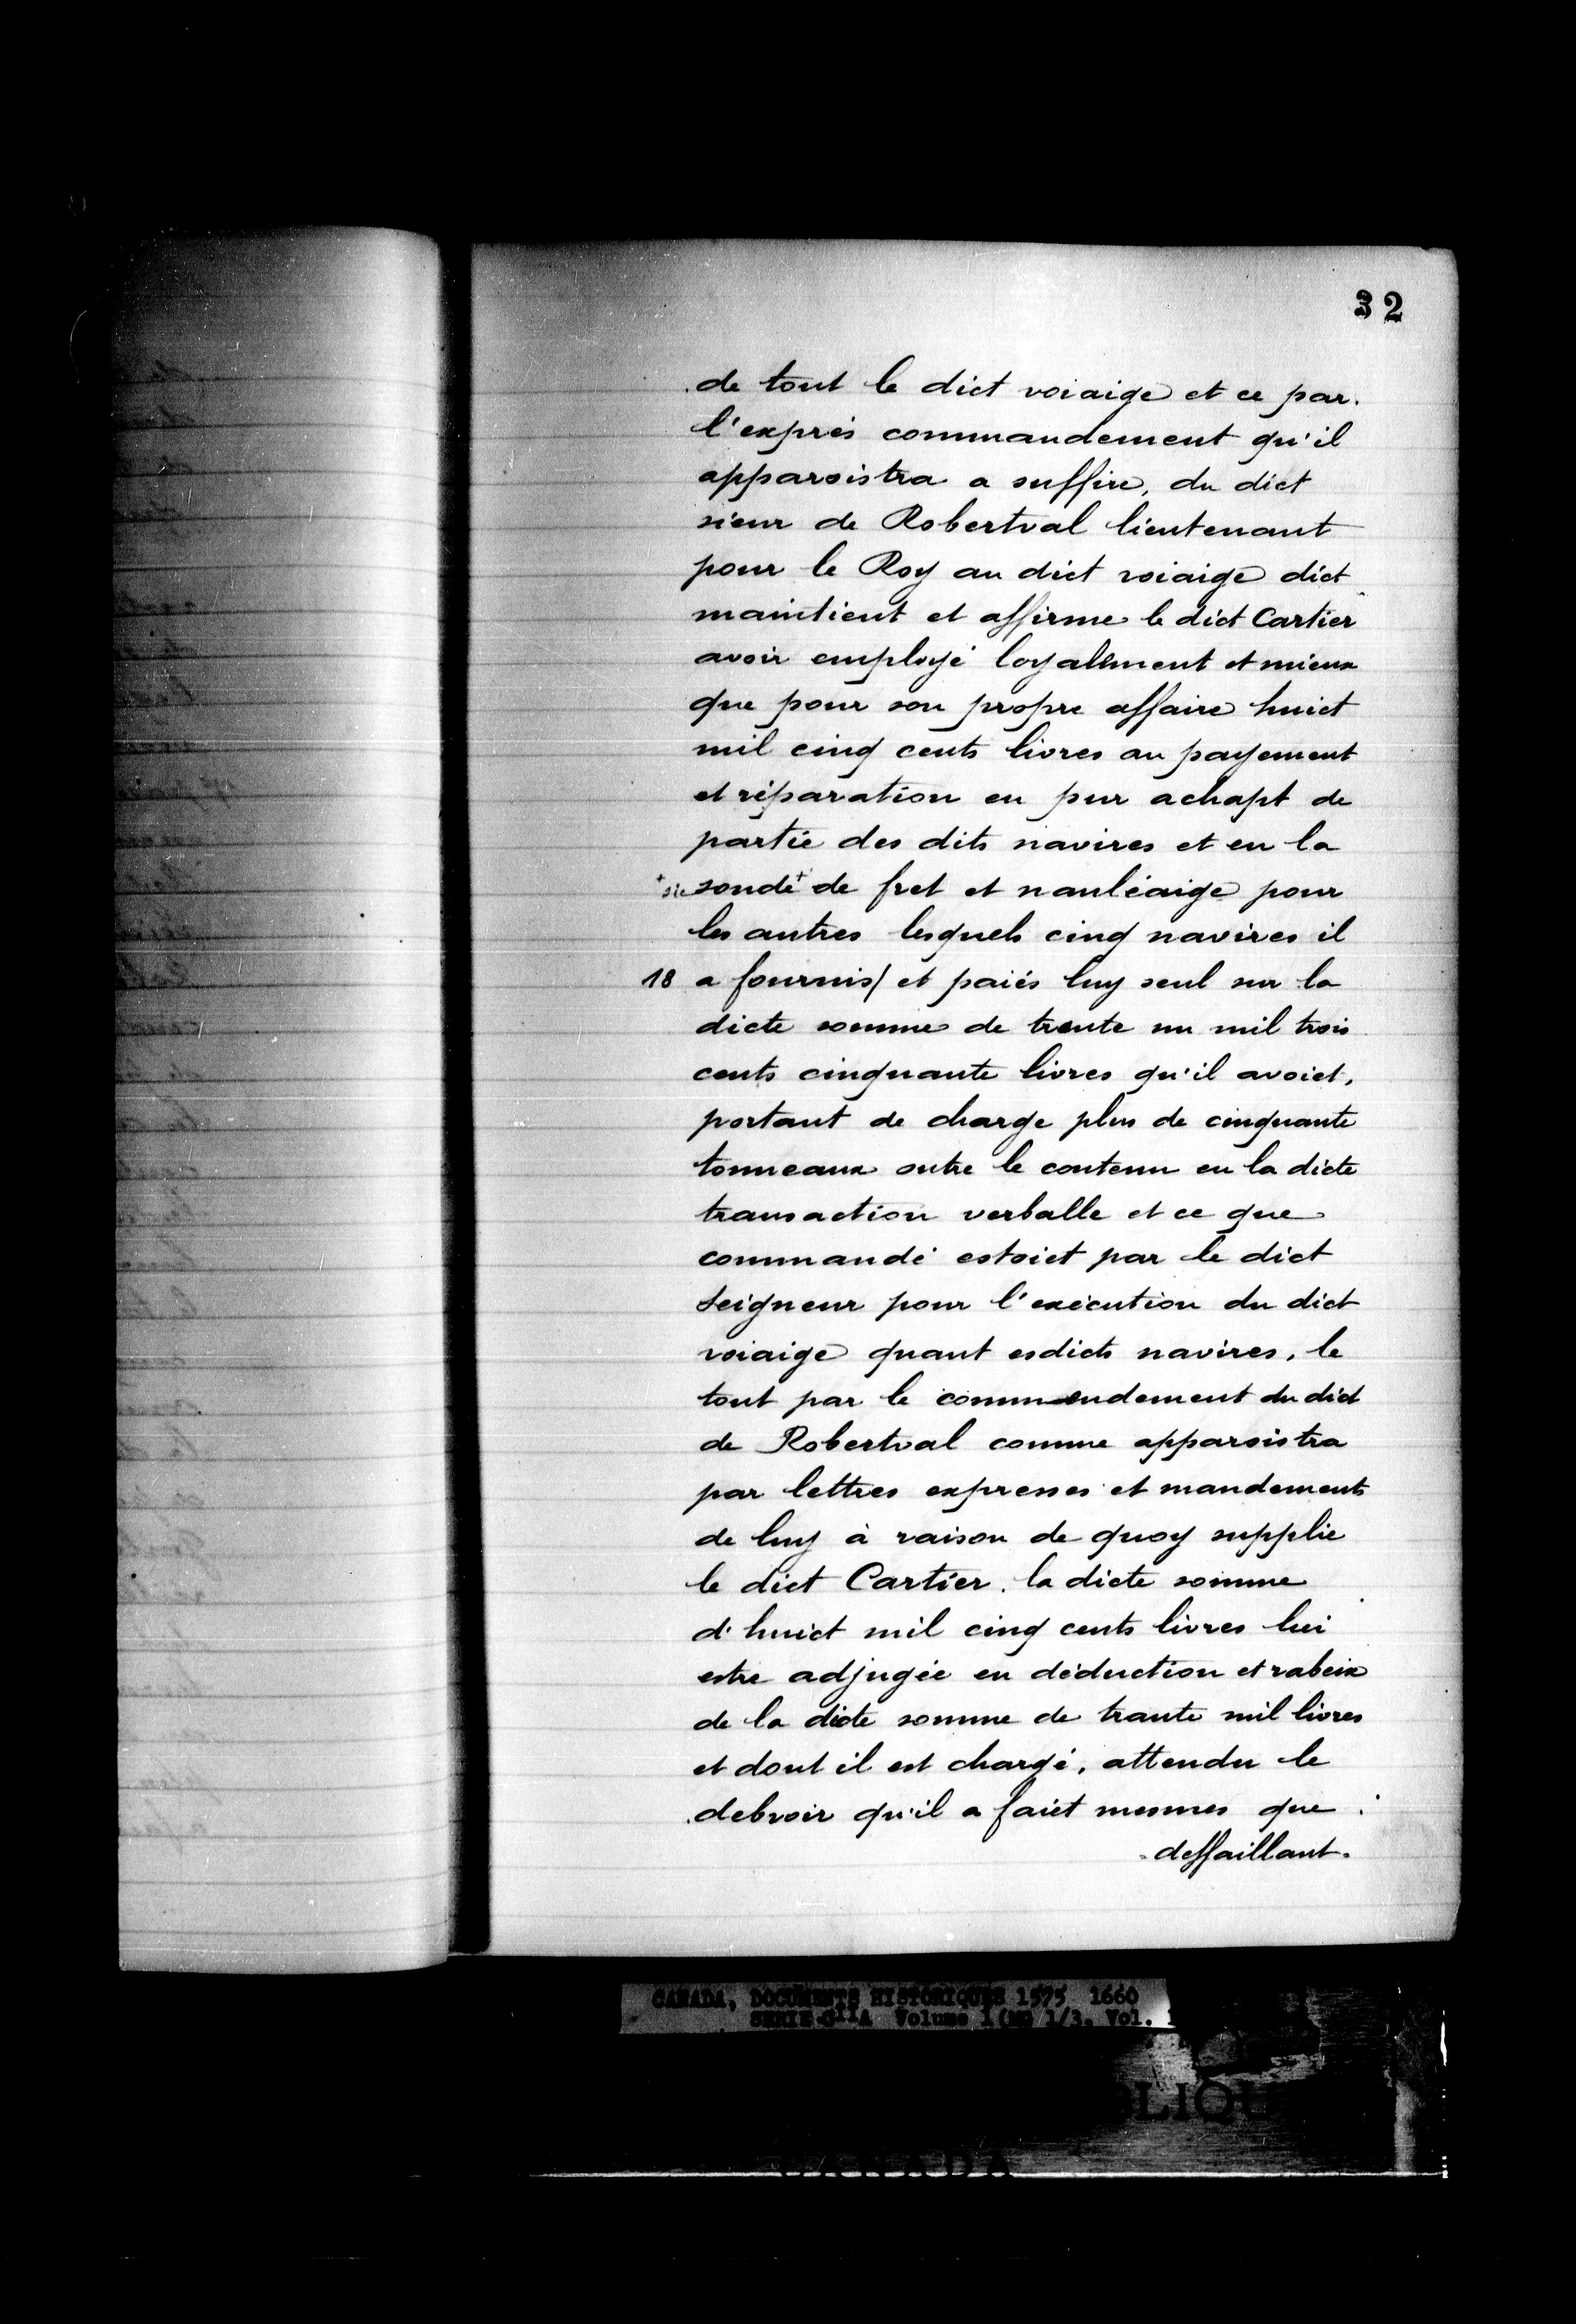 32
de tout le dict voiaige et ce par
l'exprés commandement qu'il
apparoistra a suffire, du dict
sieur de Robertval lieutenant
pour le Roy au dict voiaige dict
maintient et affirme le dict Cartier
avoir employé loyalement et mieux
que pour son propre affaire huict
mil cinq cents livres au payement
et réparation en pur achapt de
partie des dits navires et en la
+sic sonde+ de fret et nauléaige pour
les autres lesquels cinq navires il
18 a fournis/ et paiés luy seul sur la
dicte somme de trente un mil trois
cents cinquante livres qu'il avoict,
portant de charge plus de cinquante
tonneaux outre le contenu en la dicte
transaction verballe et ce que
commandé estoict par le dict
Seigneur pour l'exécution du dict
voiaige quant esdicts navires, le
tout par le commendement du dict
de Robertval comme apparoistra
par lettres expresses et mandements
de luy à raison de quoy supplie
le dict Cartier, la dicte somme
d'huict mil cinq cents livres lui
estre adjugée en déduction et rabeix
de la dicte somme de trante mil livres
et dont il est chargé, attendu le
debvoir qu'il a faict mesmes que
deffaillant.
CANADA, DOCUMENTS HISTORIQUES 1575 1660
SERIE C11A Volume 1 (MG 1/3, Vol.